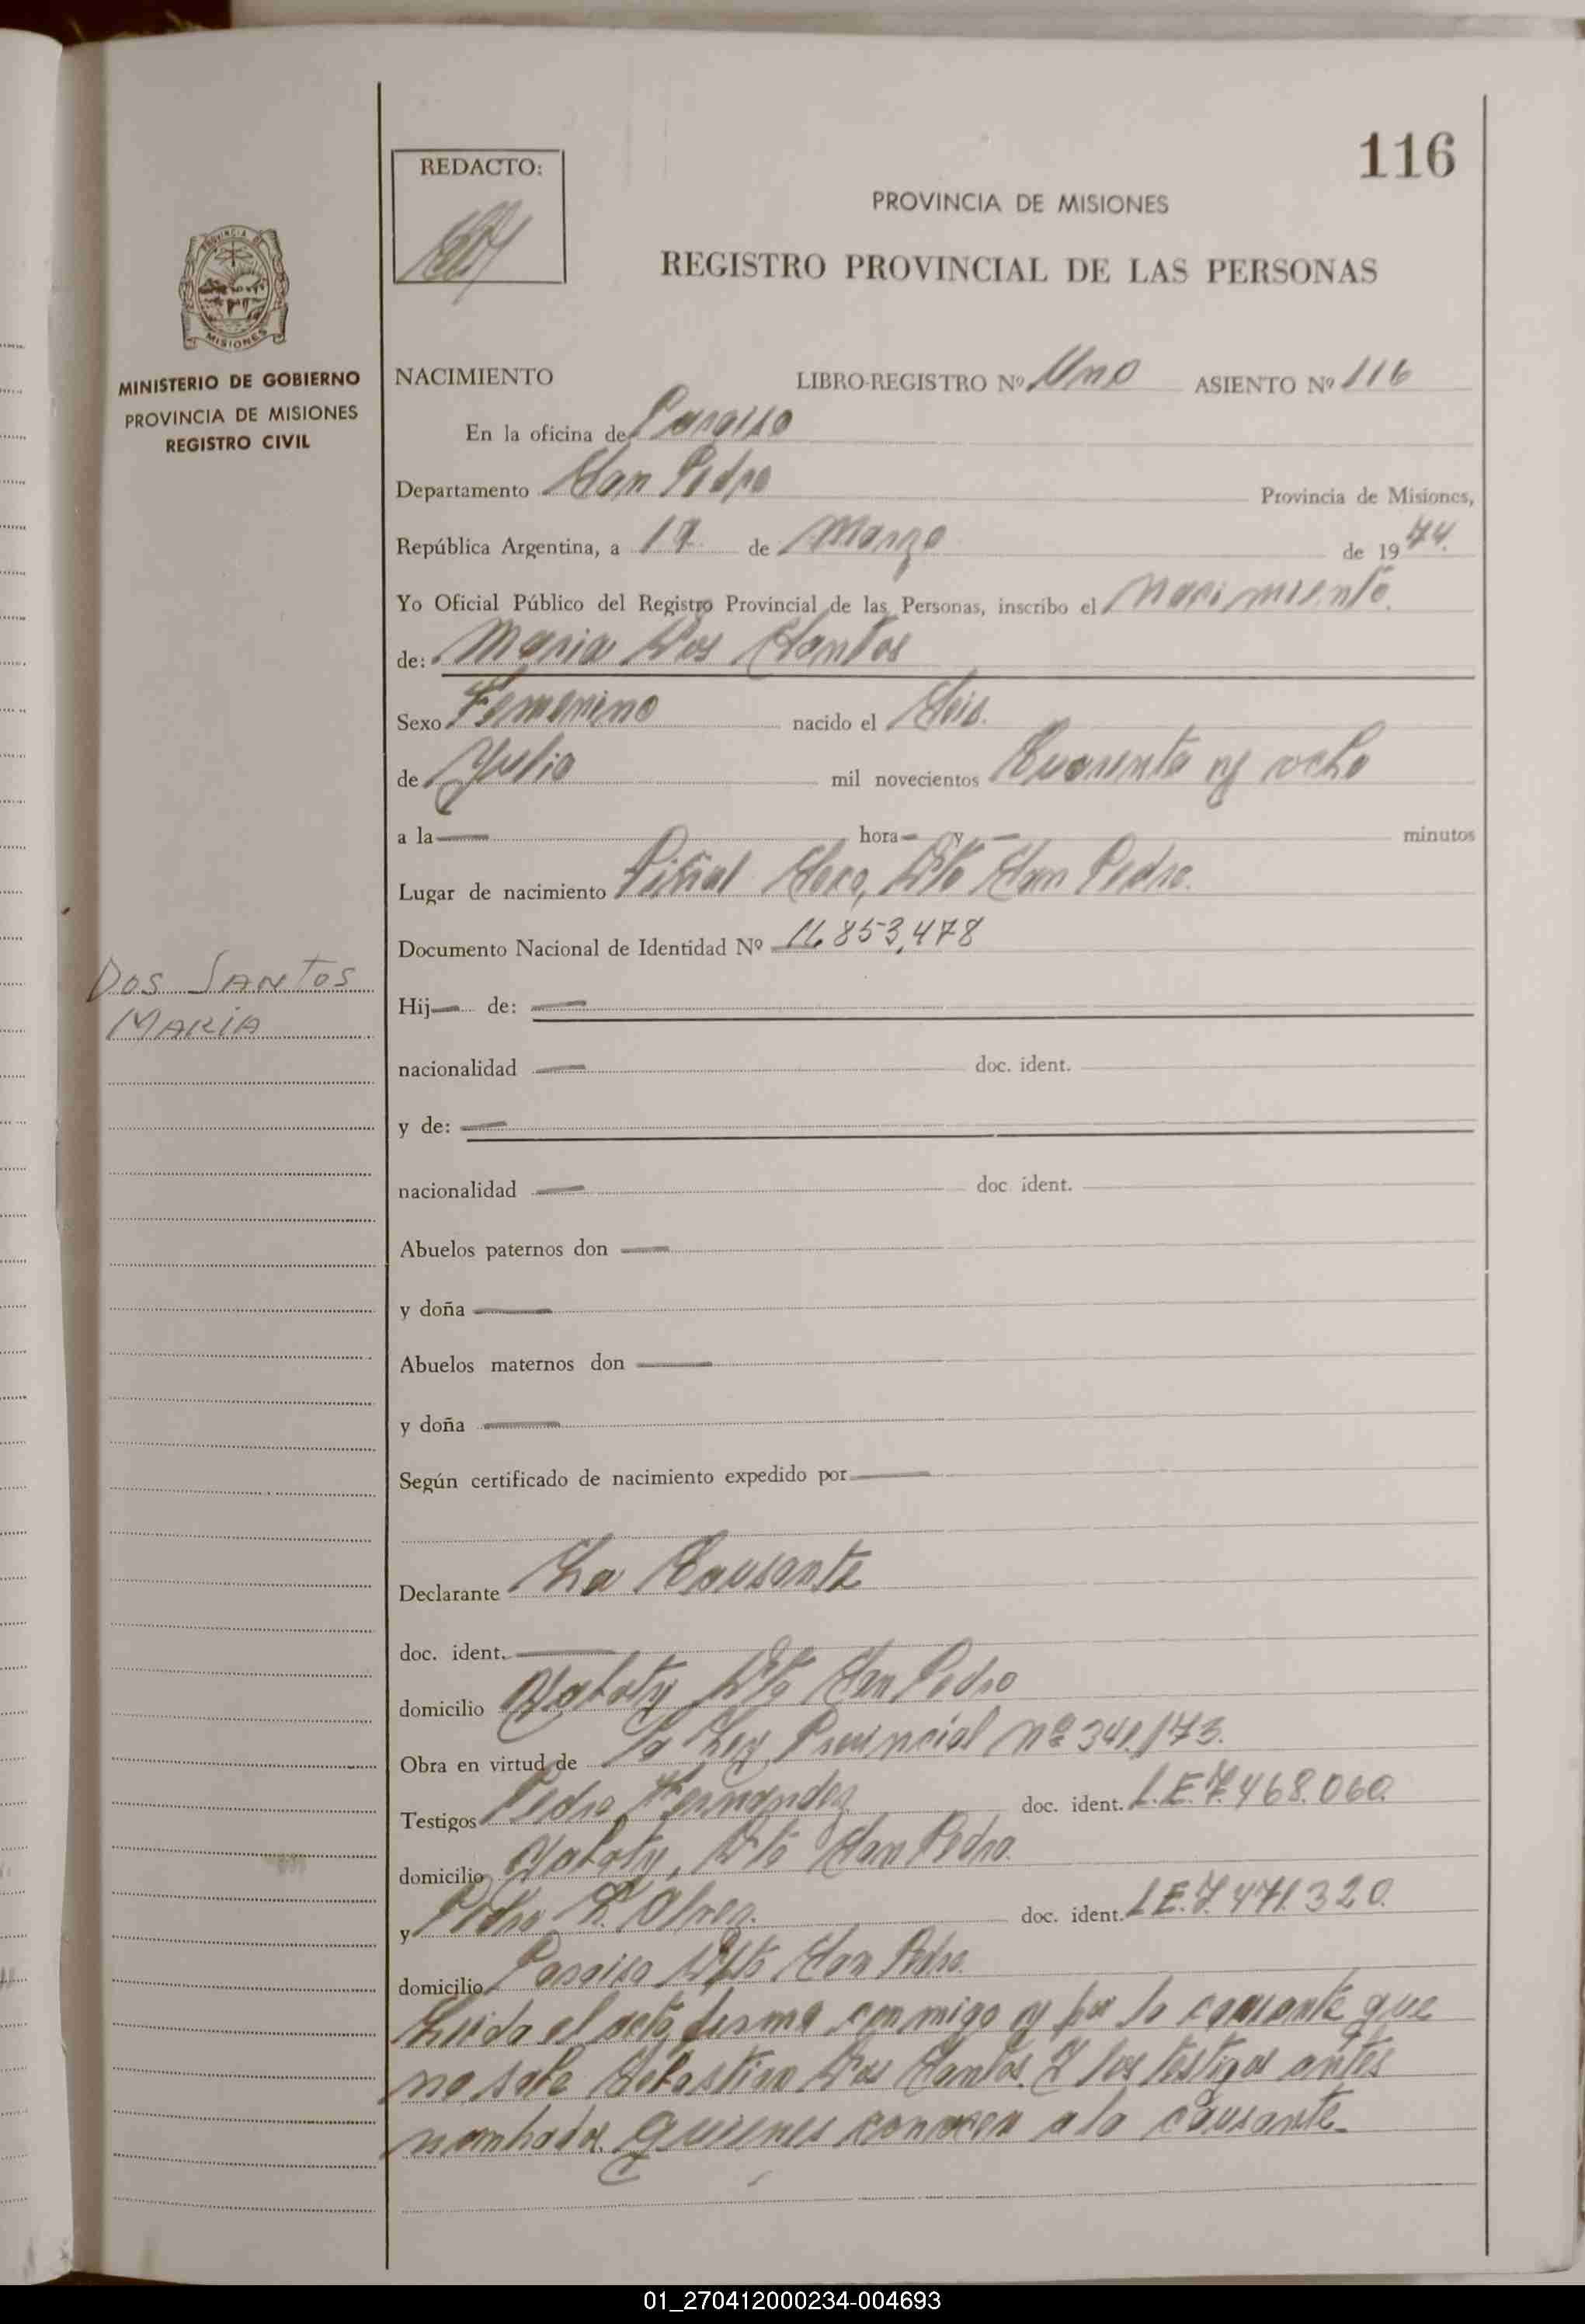 116
REDACTO:
PROVINCIA DE MISIONES
REGISTRO PROVINCIAL DE LAS PERSONAS
PROVINCIA DE
MISIONES
MINISTERIO DE GOBIERNO
PROVINCIA DE MISIONES
REGISTRO CIVIL
NACIMIENTO LIBRO-REGISTRO Nº Uno ASIENTO Nº 116
En la oficina de Paraiso
Departamento San Pedro Provincia de Misiones,
República Argentina, a de Marzo de 1974.
Yo Oficial Público del Registro Provincial de las Personas, inscribo el Nacimiento.
de: Maria Dos Santos
Sexo Femenino nacido el Seis.
de Julio mil novecientos Cuarenta y ocho
a la — hora — y — minutos
Lugar de nacimiento Piñal Seco, Dto San Pedro.
Documento Nacional de Identidad Nº 11.853,478
DOS SANTOS
MARIA
Hij— de: —
nacionalidad — doc. ident.
y de: —
nacionalidad — doc ident.
Abuelos paternos don —
y doña —
Abuelos maternos don —
y doña —
Según certificado de nacimiento expedido por —
Declarante La Causante
doc. ident. —
domicilio Yaboty Dto San Pedro
Obra en virtud de la Ley Provincial Nº 341/73.
Testigos Pedro Fernandez doc. ident. L.E. 7.468.060.
domicilio Yaboty, Dto San Pedro.
y Pedro doc. ident. L.E. 7.471.320.
domicilio Paraiso Dpto San Pedro.
Leida el acta firma conmigo y por la causante que
no sabe Sebastian Dos Santos. Y los testigos antes
nombrados quienes conocen a la causante.
01_270412000234-004693